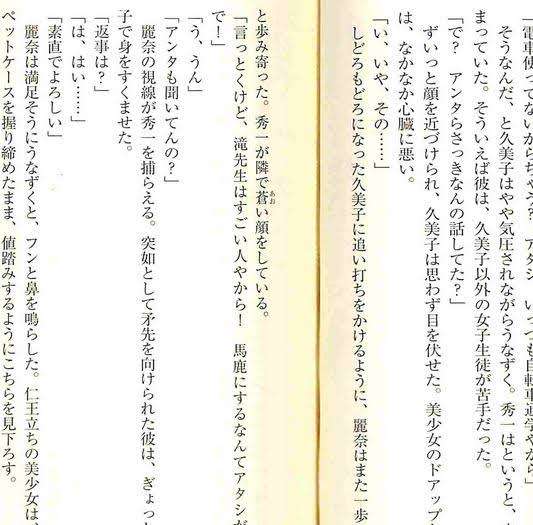 「電車使ってないからちゃう？　アタシ、いっつも自転車通学やから」
そうなんだ、と久美子はやや気圧されながらうなずく。秀一はというと、
まっていた。そういえば彼は、久美子以外の女子生徒が苦手だった。
「で？　アンタらさっきなんの話してた？」
ずいっと顔を近づけられ、久美子は思わず目を伏せた。美少女のドアップ
は、なかなか心臓に悪い。
「い、いや、その……」
しどろもどろになった久美子に追い打ちをかけるように、麗奈はまた一歩
と歩み寄った。秀一が隣で蒼い顔をしている。
「言っとくけど、滝先生はすごい人やから！　馬鹿にするなんてアタシが
で！」
「う、うん」
「アンタも聞いてんの？」
麗奈の視線が秀一を捕らえる。突如として矛先を向けられた彼は、ぎょっ
子で身をすくませた。
「返事は？」
「は、はい……」
「素直でよろしい」
麗奈は満足そうにうなずくと、フンと鼻を鳴らした。仁王立ちの美少女は、
ペットケースを握り締めたまま、値踏みするようにこちらを見下ろす。